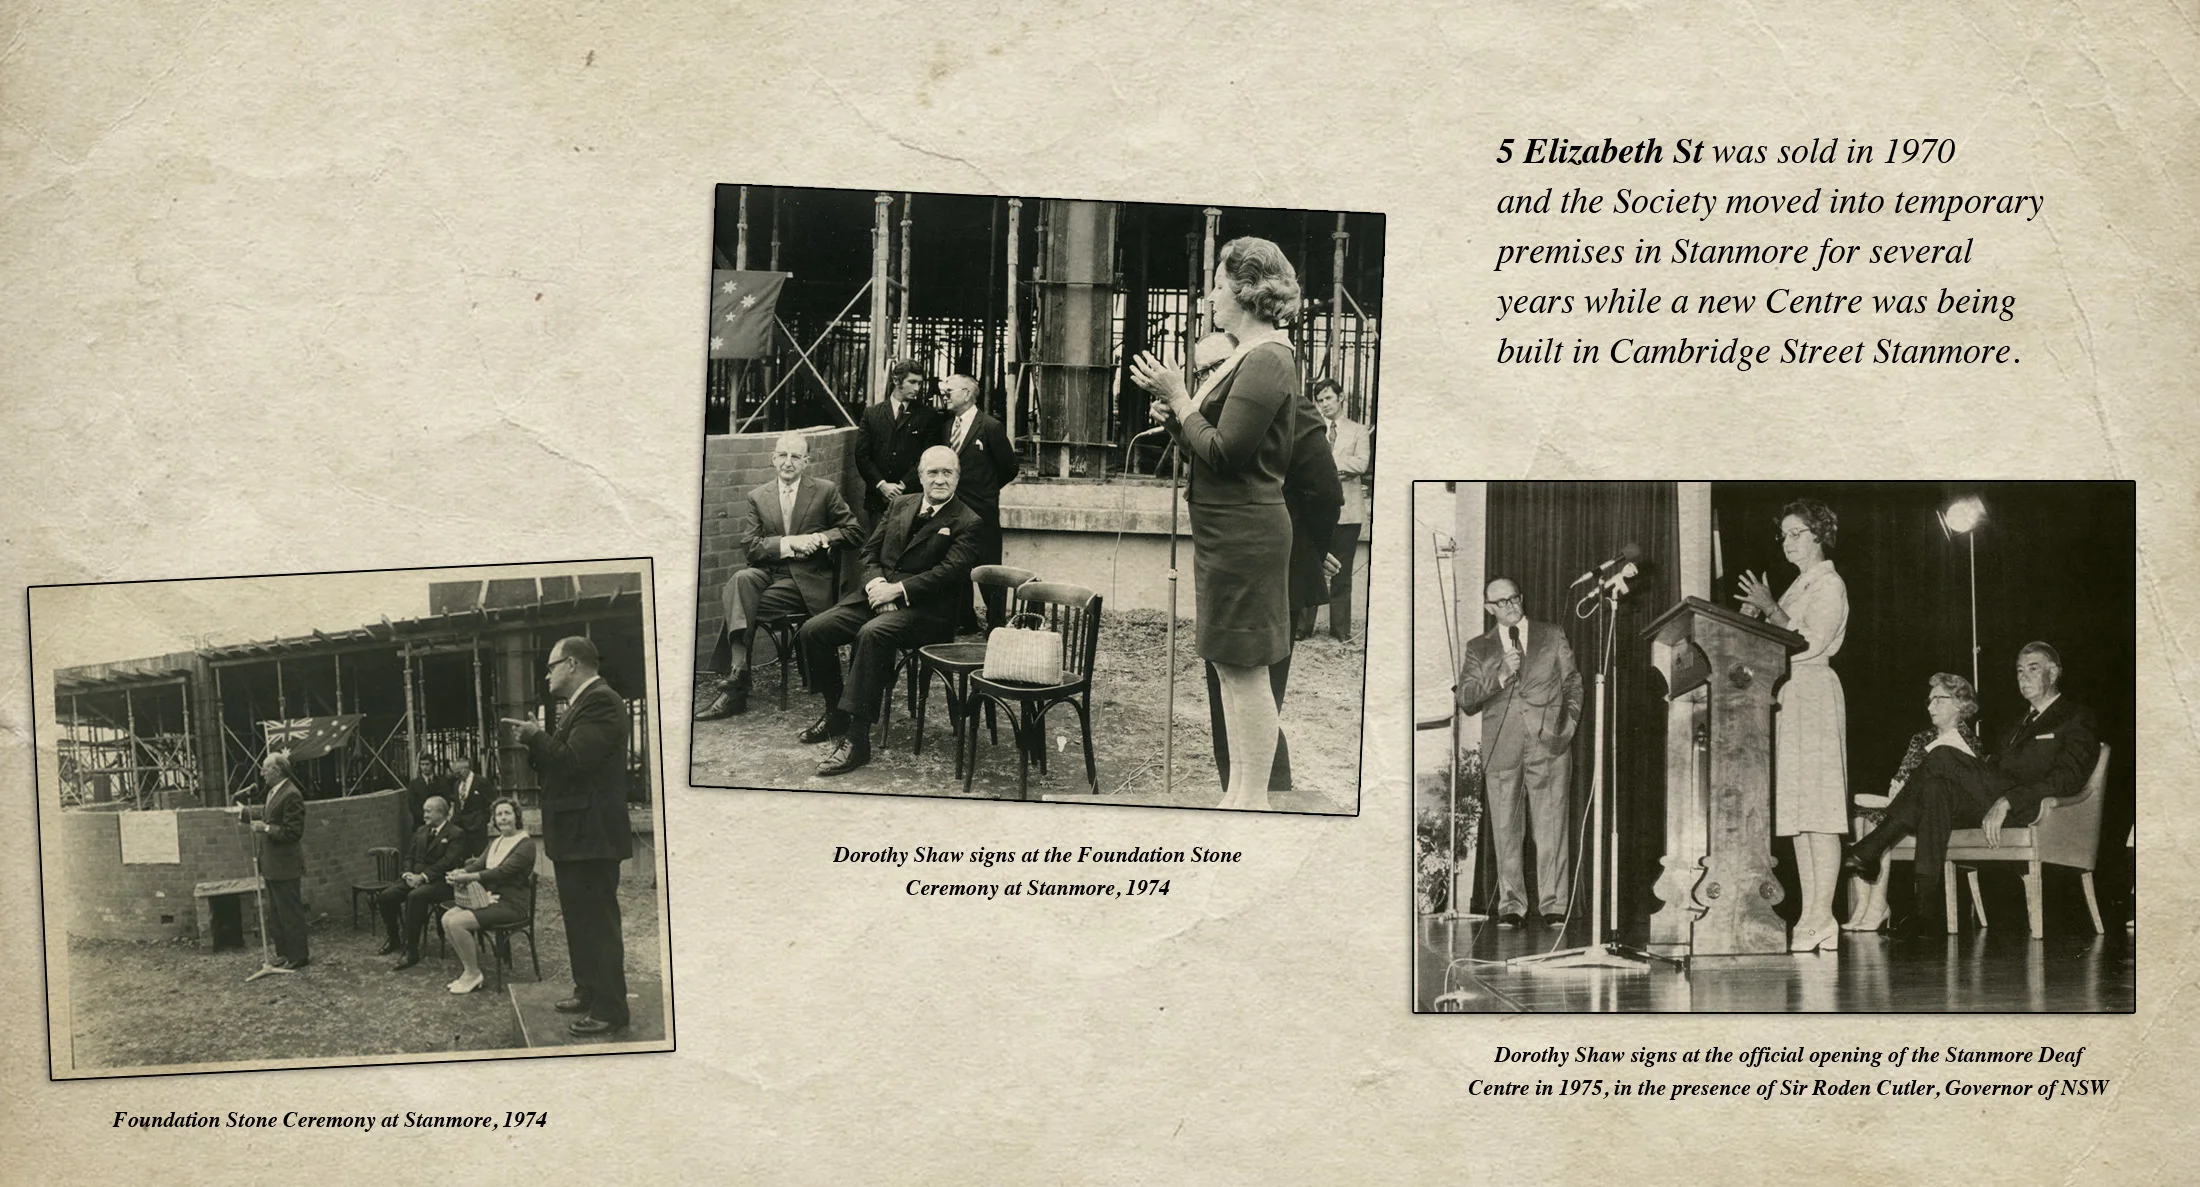 5 Elizabeth St was sold in 1970
and the Society moved into temporary
premises in Stanmore for several
years while a new Centre was being
built in Cambridge Street Stanmore.
Dorothy Shaw signs at the Foundation Stone
Ceremony at Stanmore, 1974
Dorothy Shaw signs at the official opening of the Stanmore Deaf
Centre in 1975, in the presence of Sir Roden Cutler, Governor of NSW
Foundation Stone Ceremony at Stanmore, 1974